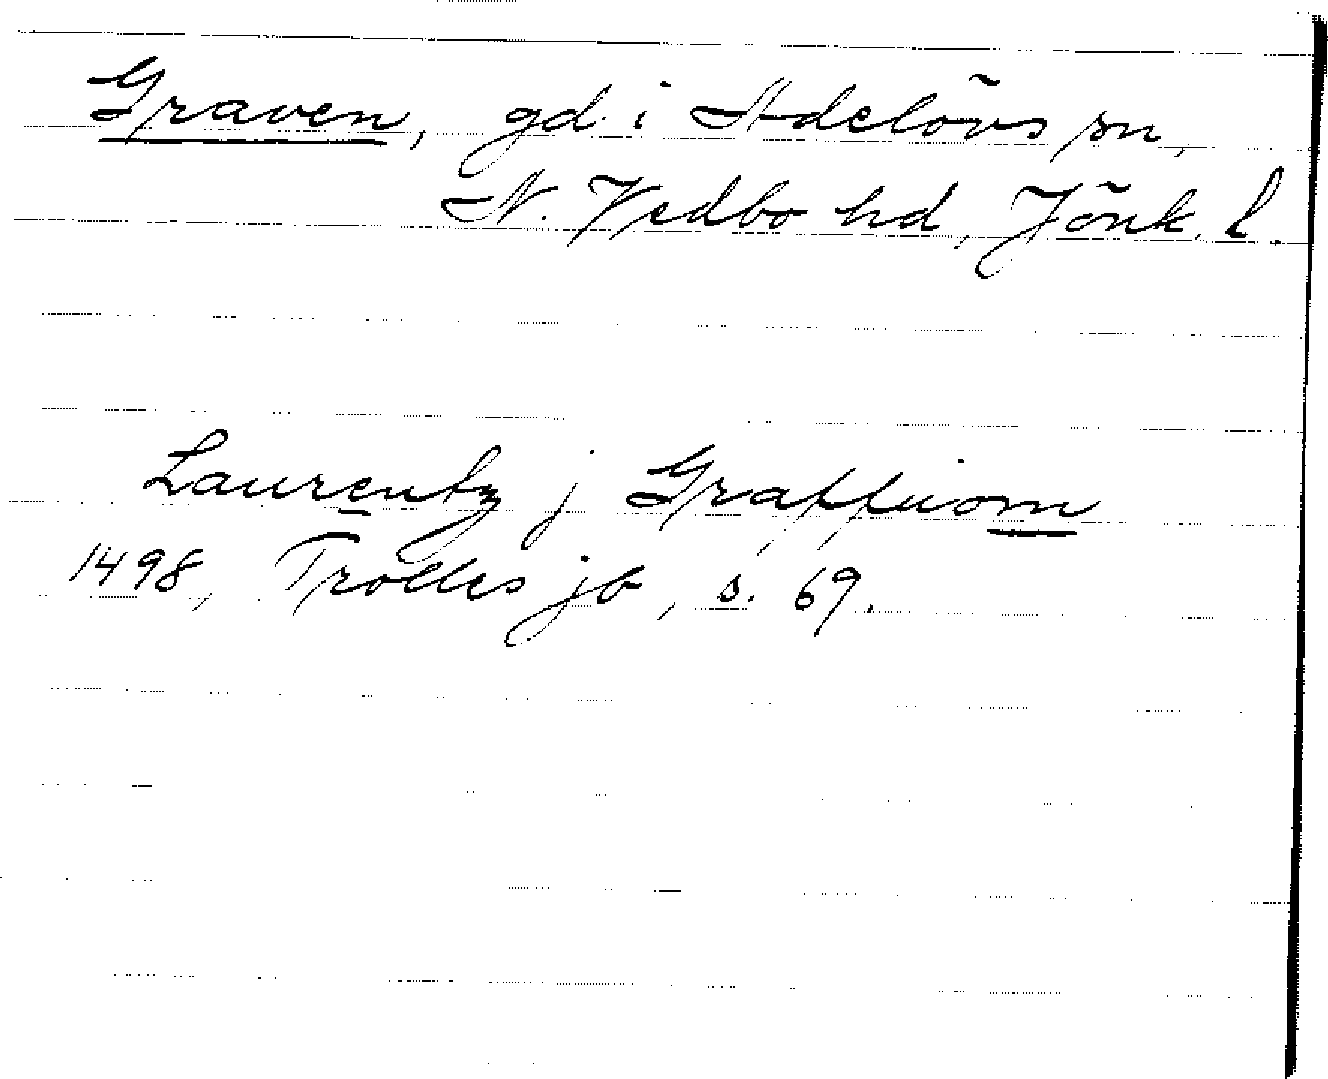 Graven, gd. i Adelövs sn,
N. Vedbo hd, Jönk. l.
Laurentz j Graffuiom
1498, Trolles jb, s. 69.